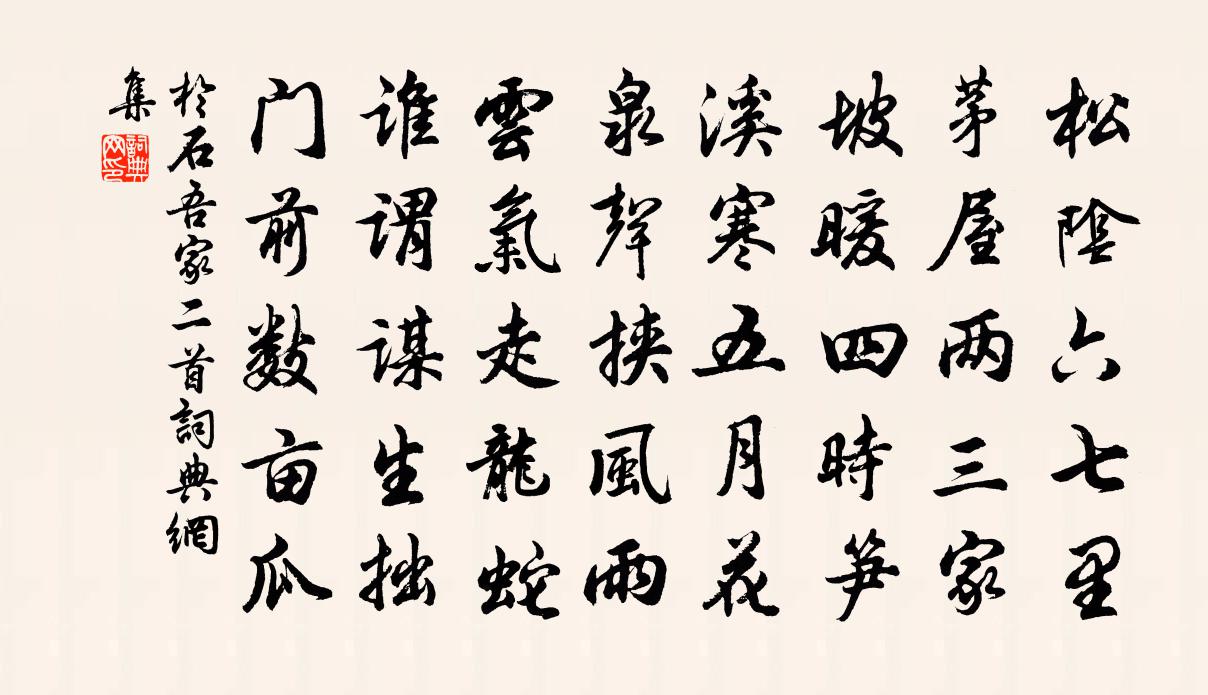 松陰六七里
茅屋两三家
坡暖四時笋
溪寒五月花
泉聲挟風雨
雲氣走龍蛇
谁谓谋生拙
门前数亩瓜
於石吾家二首詞典網
集
詞典
网印